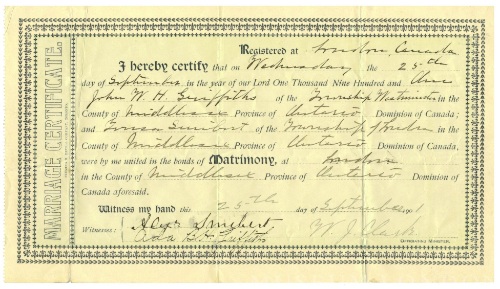 MARRIAGE CERTIFICATE.
Registered at London, Canada
I hereby certify that on Wednesday the 25th
day of September in the year of our Lord One Thousand Nine Hundred and One
John W. H. Griffiths of the Township Westminster in the
County of Middlesex Province of Ontario Dominion of Canada;
and of the Township of in the
County of Middlesex Province of Ontario Dominion of Canada,
were by me united in the bonds of Matrimony, at London
in the County of Middlesex Province of Ontario Dominion of
Canada aforesaid.
Witness my hand this 25th day of September 1901
Witnesses: Alex
W. J. Clark
Officiating Minister.